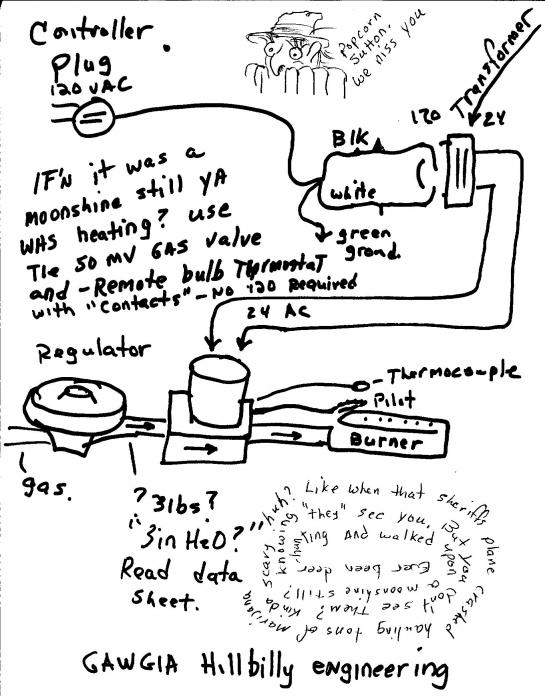 Controller
Plug
120 vAC
Popcorn
Sutton.
we miss you
Transformer
120
24
Blk
white
green
grond.
IF'n it was a
moonshine still yA
WAS heating? use
The 50 mv GAS valve
and - Remote bulb Thrmostat
with "Contacts" - No 120 Required
24 AC
Regulator
Thermocouple
Pilot
Burner
gas.
? 3lbs?
"3in H2O?"
Read data
sheet.
Ever been deer hunting and walked upon a moonshine still? knowing "they" see you, But you don't see Them? Kinda scary huh? Like when that sheriffs plane crashed hauling tons of marijuana
GAWGIA Hillbilly engineering